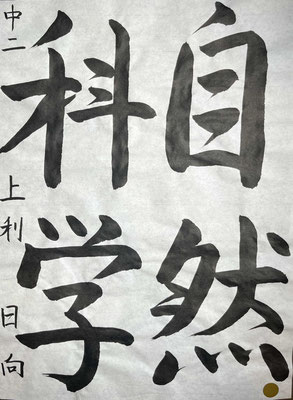 自然
科学
中二 上利 日向